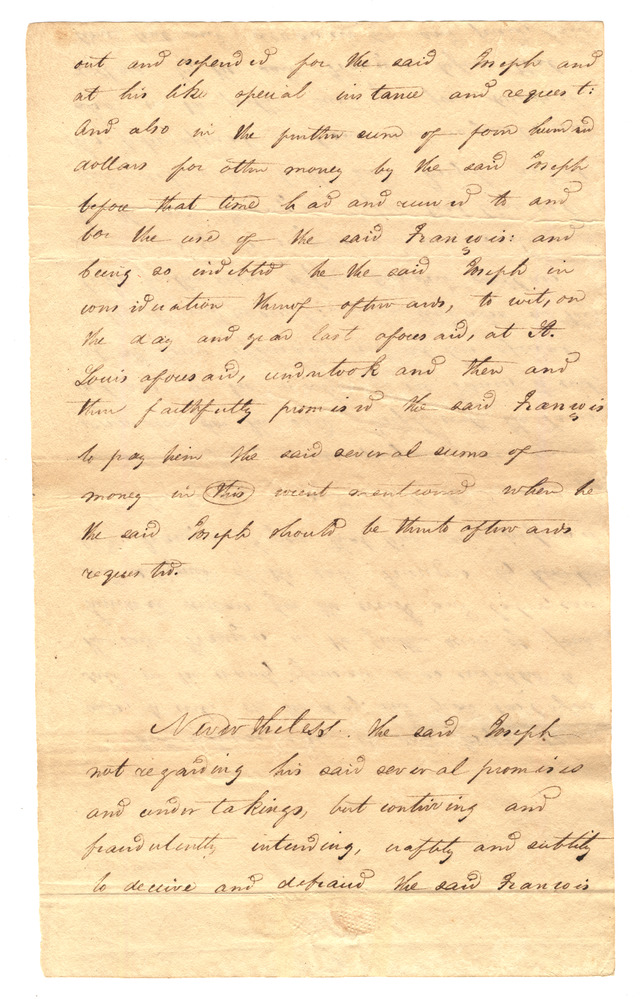 out and expended for the said Joseph and
at his like special instance and request:
And also in the further sum of four hundred
dollars for other money by the said Joseph
before that time had and received to and
for the use of the said François: and
being so indebted he the said Joseph in
consideration thereof afterwards, to wit, on
the day and year last aforesaid, at St.
Louis aforesaid, undertook and then and
there faithfully promised the said François
to pay him the said several sums of
money in this count mentioned when he
the said Joseph should be thereto afterwards
requested.
Nevertheless. the said Joseph
not regarding his said several promises
and undertakings, but contriving and
fraudulently intending, craftily and subtily
to deceive and defraud the said François